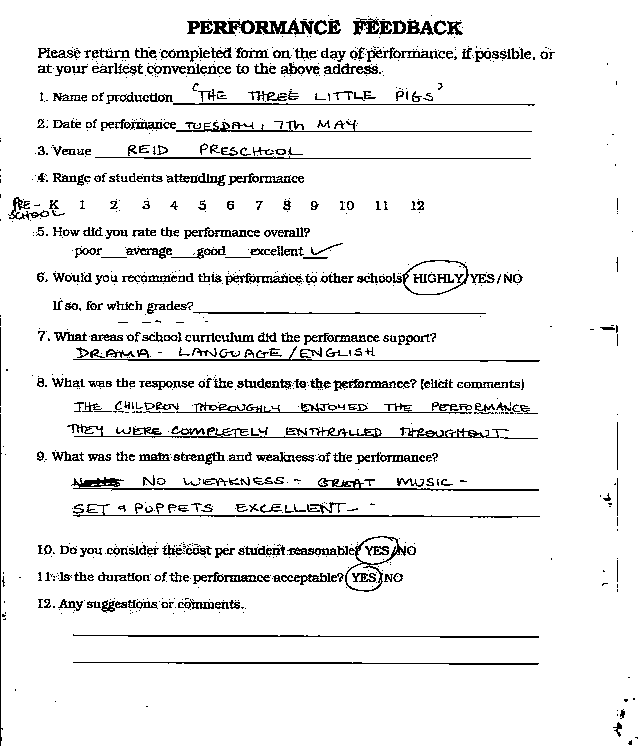 PERFORMANCE FEEDBACK
Please return the completed form on the day of performance, if possible, or
at your earliest convenience to the above address.
1. Name of production 'THE THREE LITTLE PIGS'
2. Date of performance TUESDAY, 7TH MAY
3. Venue REID PRESCHOOL
4. Range of students attending performance
PRE- K 1 2 3 4 5 6 7 8 9 10 11 12
SCHOOL
5. How did you rate the performance overall?
poor average good excellent ✓
6. Would you recommend this performance to other schools? HIGHLY/YES/NO
If so, for which grades?
7. What areas of school curriculum did the performance support?
DRAMA - LANGUAGE/ENGLISH
8. What was the response of the students to the performance? (elicit comments)
THE CHILDREN THOROUGHLY ENJOYED THE PERFORMANCE
THEY WERE COMPLETELY ENTHRALLED THROUGHOUT
9. What was the main strength and weakness of the performance?
NO WEAKNESS - GREAT MUSIC -
SET & PUPPETS EXCELLENT -
10. Do you consider the cost per student reasonable? YES/NO
11. Is the duration of the performance acceptable? YES/NO
12. Any suggestions or comments.